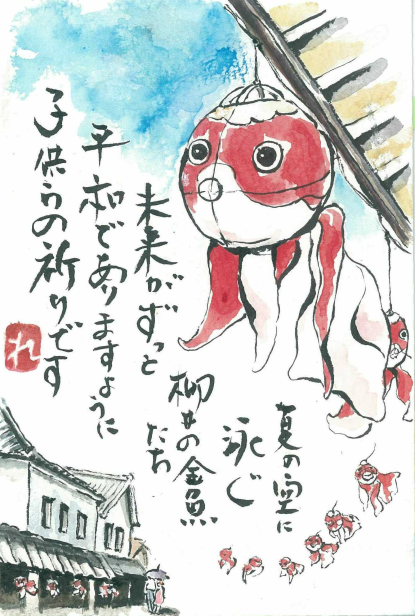 夏の空に
泳ぐ
柳井の金魚
たち
未来がずっと
平和でありますように
子供らの祈りです
れ